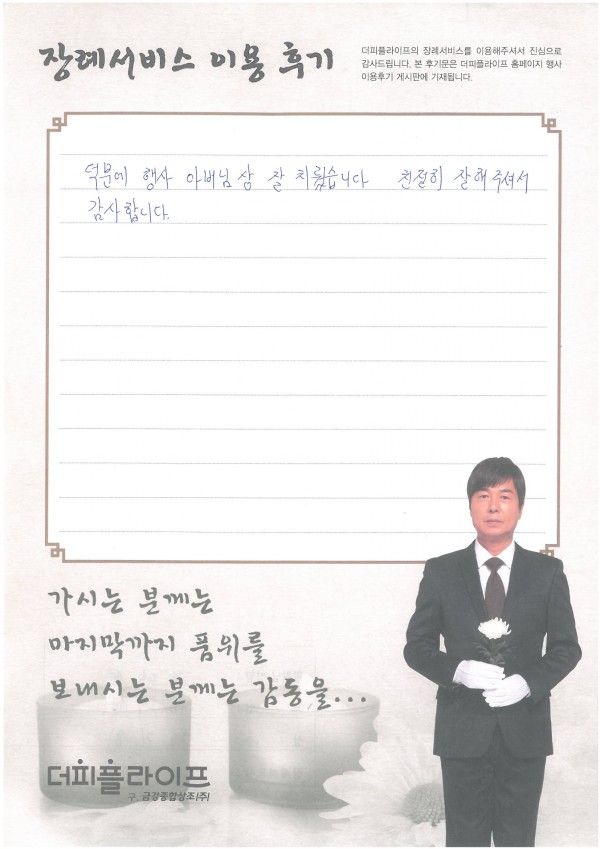 장례서비스 이용 후기
더피플라이프의 장례서비스를 이용해주셔서 진심으로
감사드립니다. 본 후기문은 더피플라이프 홈페이지 행사
이용후기 게시판에 기재됩니다.
덕분에 행사 아버님 상 잘 치뤘습니다 친절히 잘해주셔서
감사합니다.
가시는 분께는
마지막까지 품위를
보내시는 분께는 감동을...
더피플라이프
구. 금강종합상조(주)